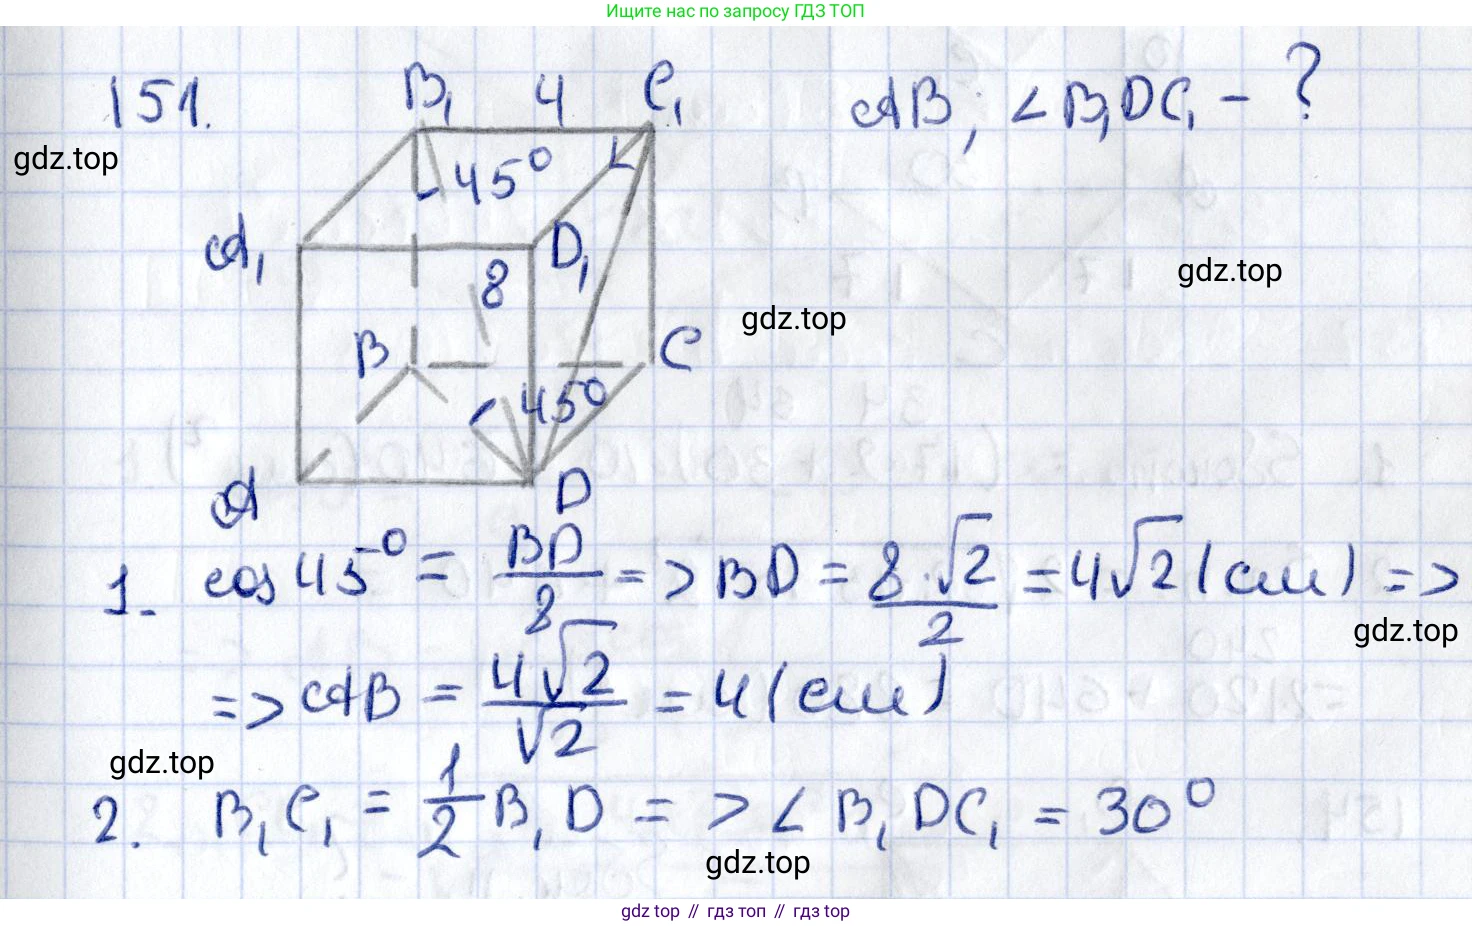 Ищите нас по запросу ГДЗ ТОП
151.
B₁ 4 C₁
AB; ∠B₁DC₁ - ?
gdz.top
45°
A₁ D₁
gdz.top
8
gdz.top
B C
45°
A D
1. cos 45° = BD/8 => BD = 8·√2/2 = 4√2 (см) =>
gdz.top
=> AB = 4√2/√2 = 4 (см)
gdz.top
2. B₁C₁ = 1/2 B₁D => ∠B₁DC₁ = 30°
gdz.top
gdz top // гдз топ // gdz top